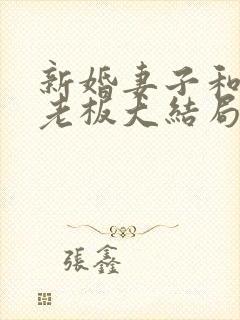 新婚妻子和
老板大结局
張鑫